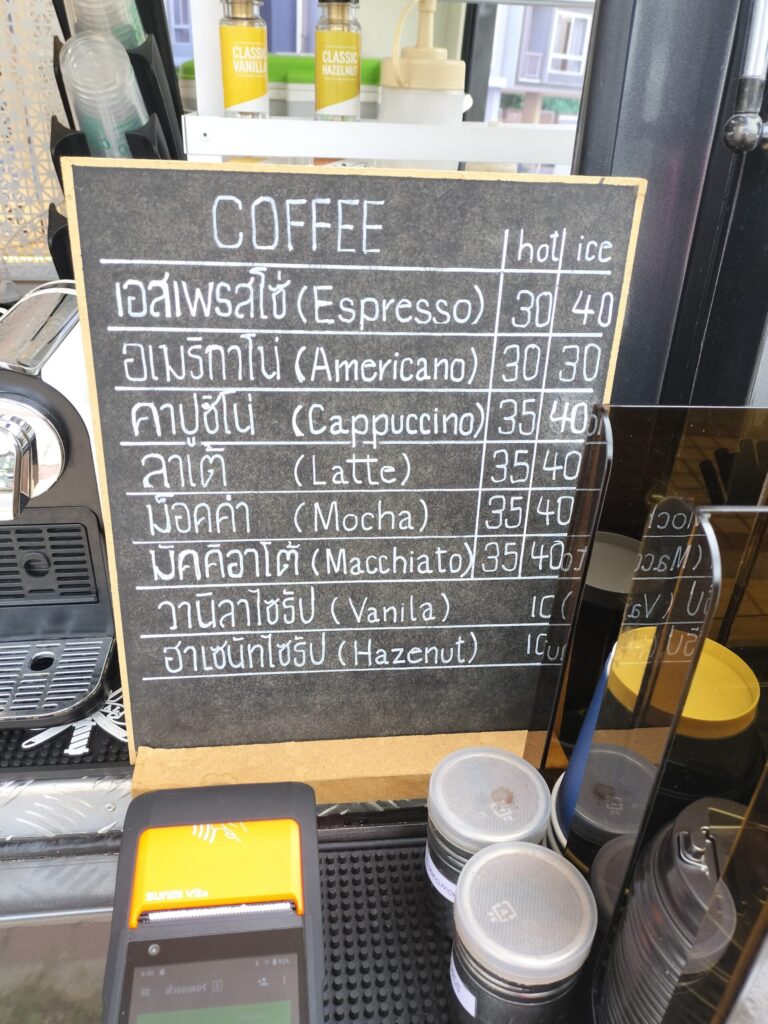 CLASSIC
VANILLA
CLASSIC
HAZELNUT
COFFEE hot ice
เอสเพรสโซ่ (Espresso) 30 40
อเมริกาโน่ (Americano) 30 30
คาปูชิโน่ (Cappuccino) 35 40
ลาเต้ (Latte) 35 40
ม็อคค่า (Mocha) 35 40
มัคคิอาโต้ (Macchiato) 35 40
วานิลาไซรัป (Vanila) 10
ฮาเซนัทไซรัป (Hazenut) 10
SUNMI V2s
92%